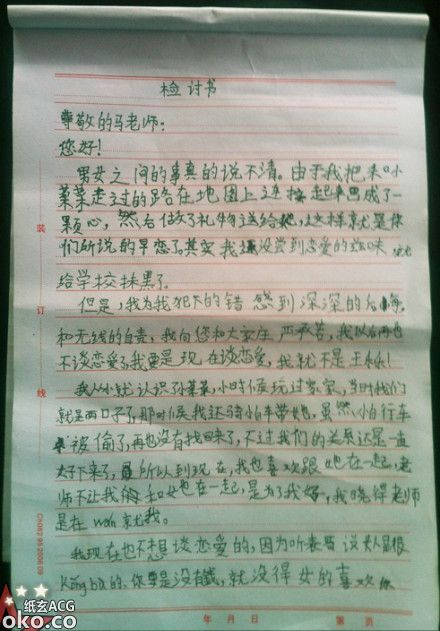 检讨书
尊敬的马老师:
您好!
男女之间的事真的说不清。由于我把和小
菜菜走过的路在地图上连接起来画成了一
颗心,然后做了礼物送给她,这样就是你
们所说的早恋了。其实我还没尝到恋爱的滋味
给学校抹黑了。
但是,我为我犯下的错感到深深的后悔
和无线的自责,我向您和大家庄严承若,我以后再也
不谈恋爱了。我要是现在谈恋爱,我就不是王
我从小就认识孙菜菜,小时候玩过家家,当时我们
就是两口子了,那时候我还骑自行车带她,虽然自行车
被偷了,再也没有找回来了,不过我们的关系还是一直
好下来了,所以到现在,我也喜欢跟她在一起,老
师不让我和她在一起,是为了我好,我晓得老师
是在wan救我。
我现在也不想谈恋爱的,因为听表哥说女人是很
kong bu的,你要是没有钱,就没得女的喜欢你
装
订
线
年 月 日
第 页
纸玄ACG
oko.co